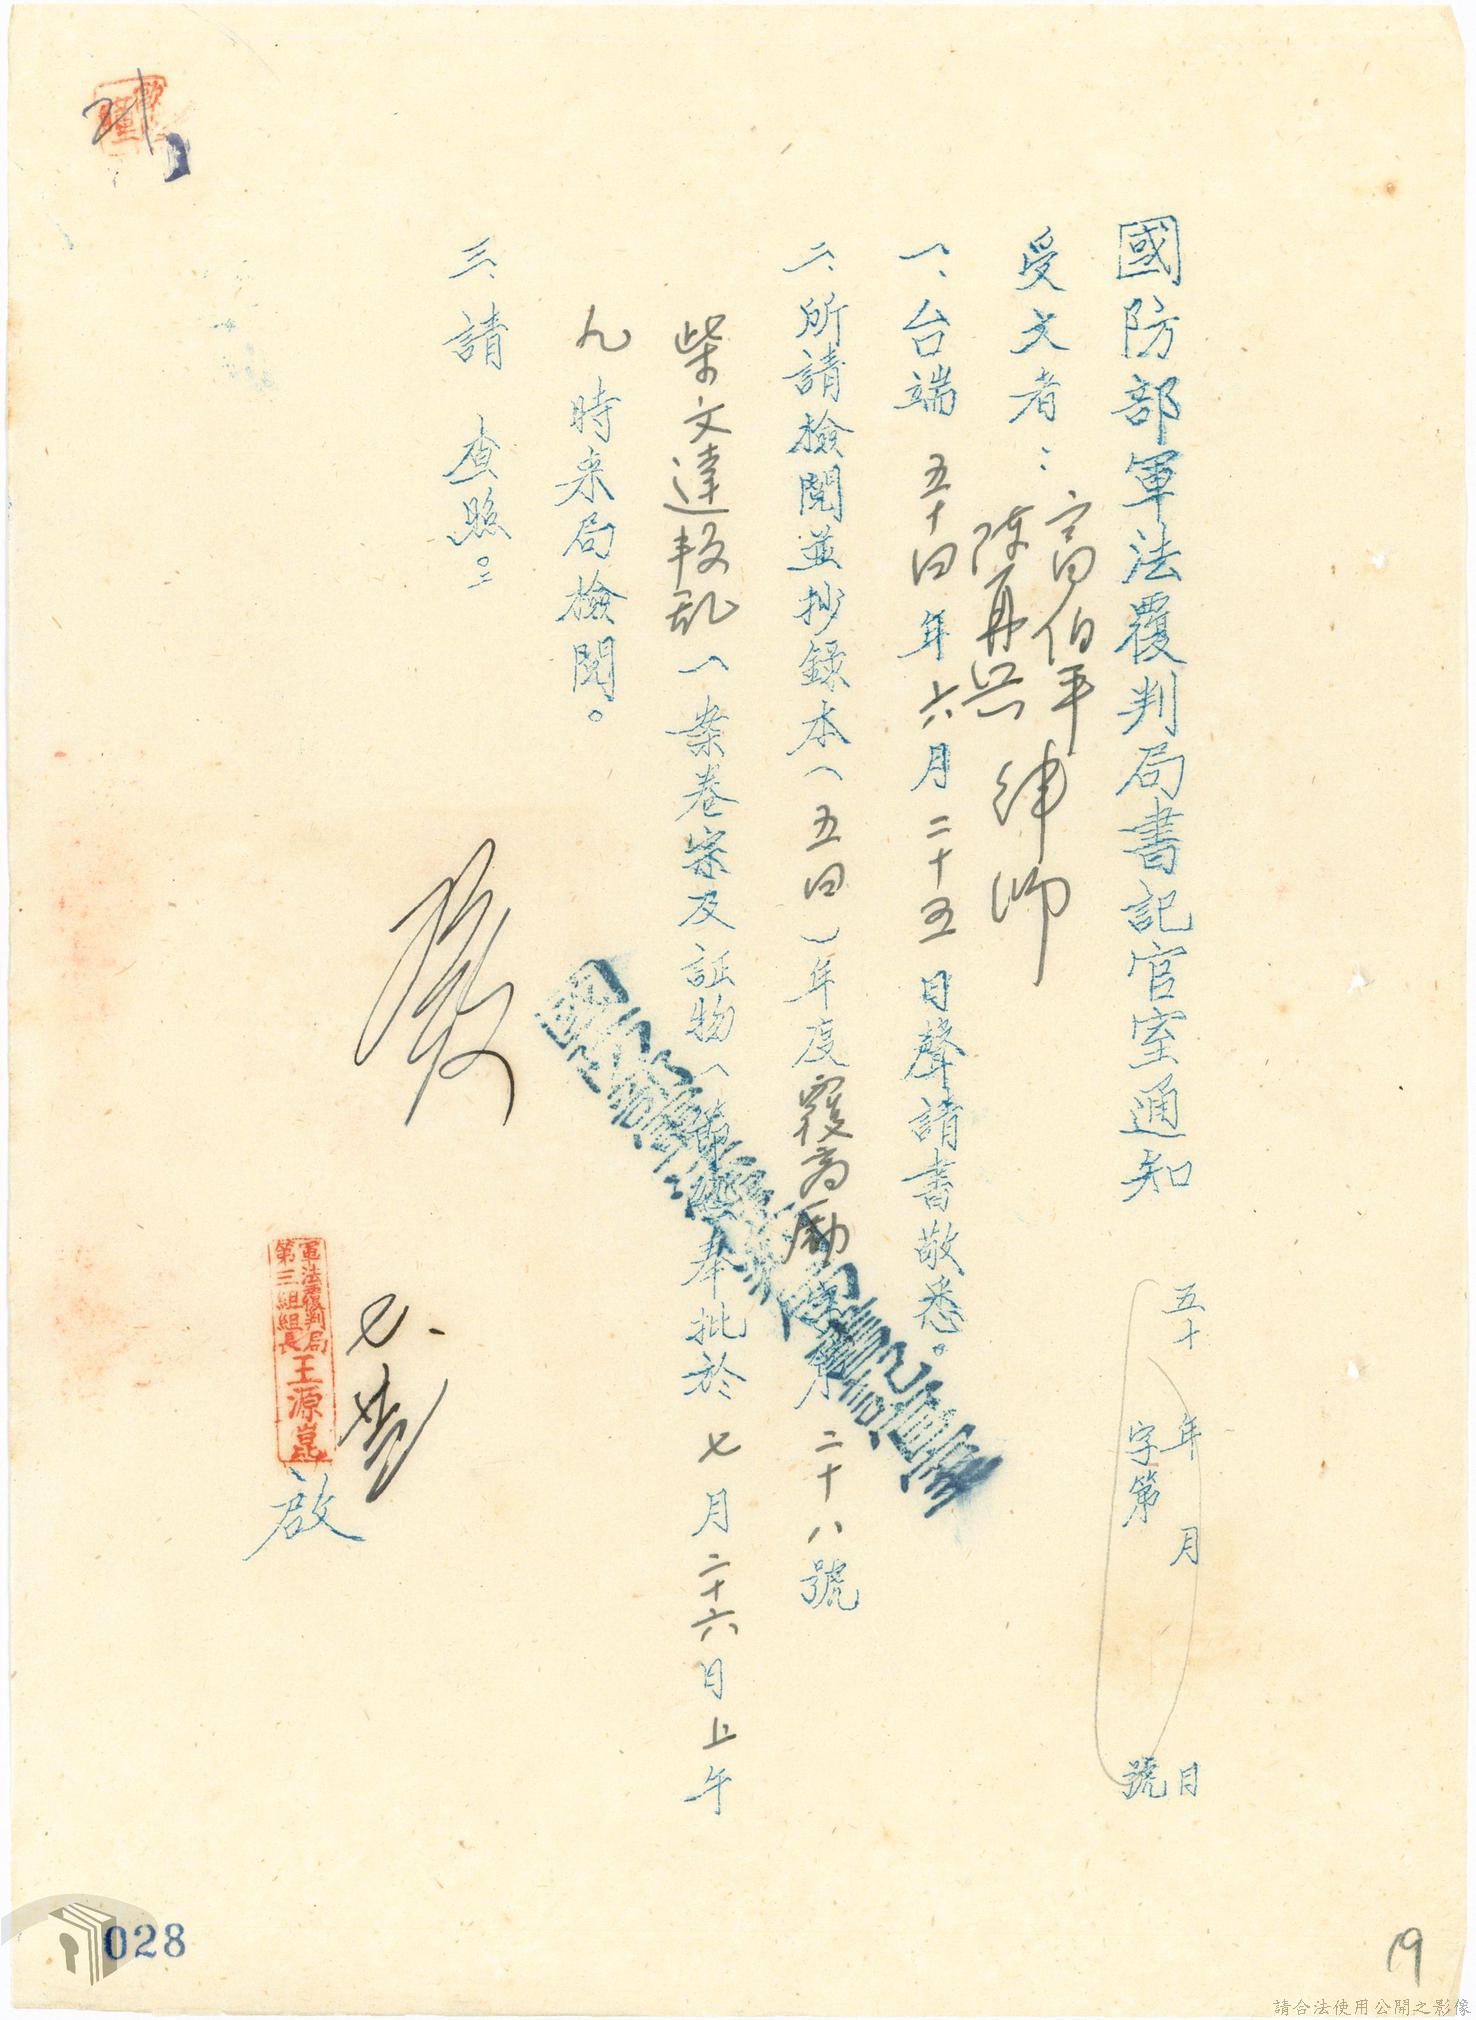 國防部軍法覆判局書記官室通知
五十　年　月　日
字第　號
受文者：高伯平
陳再興 律師
一、台端 五十四年六月二十五日聲請書敬悉。
二、所請檢閱並抄錄本（五四）年度覆高 第二十八號
柴文達叛乱一案卷宗及証物 奉批於 七月二十六日上午
九時来局檢閱。
三、請　查照。
國防部軍法覆判局書記官室
七．
軍法覆判局
第三組組長 王源崑
啟
21
028
19
請合法使用公開之影像